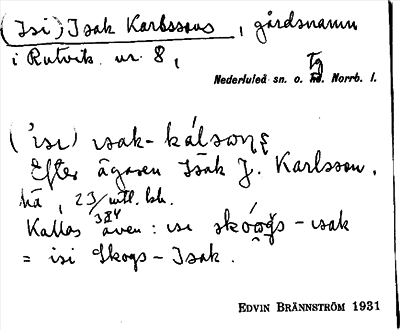 (Isi) Isak Karlssons, gårdsnamn
i Rutvik. nr. 8,
Nederluleå sn. o. tg Norrb. l.
('isı) ısak-kálsɷɳʂ
Efter ägaren Isak J. Karlsson.
23/
Kallas även: ısı skóoǥs-ısak
= isi Skogs-Isak.
EDVIN BRÄNNSTRÖM 1931